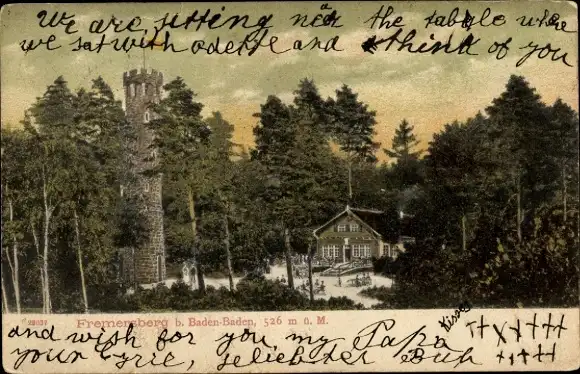 We are sitting near the table where
we sat with odette and think of you
Fremersberg b. Baden-Baden, 526 m ü. M.
and wish for you, my Papa Kisses
your Eric, geliebster Bub